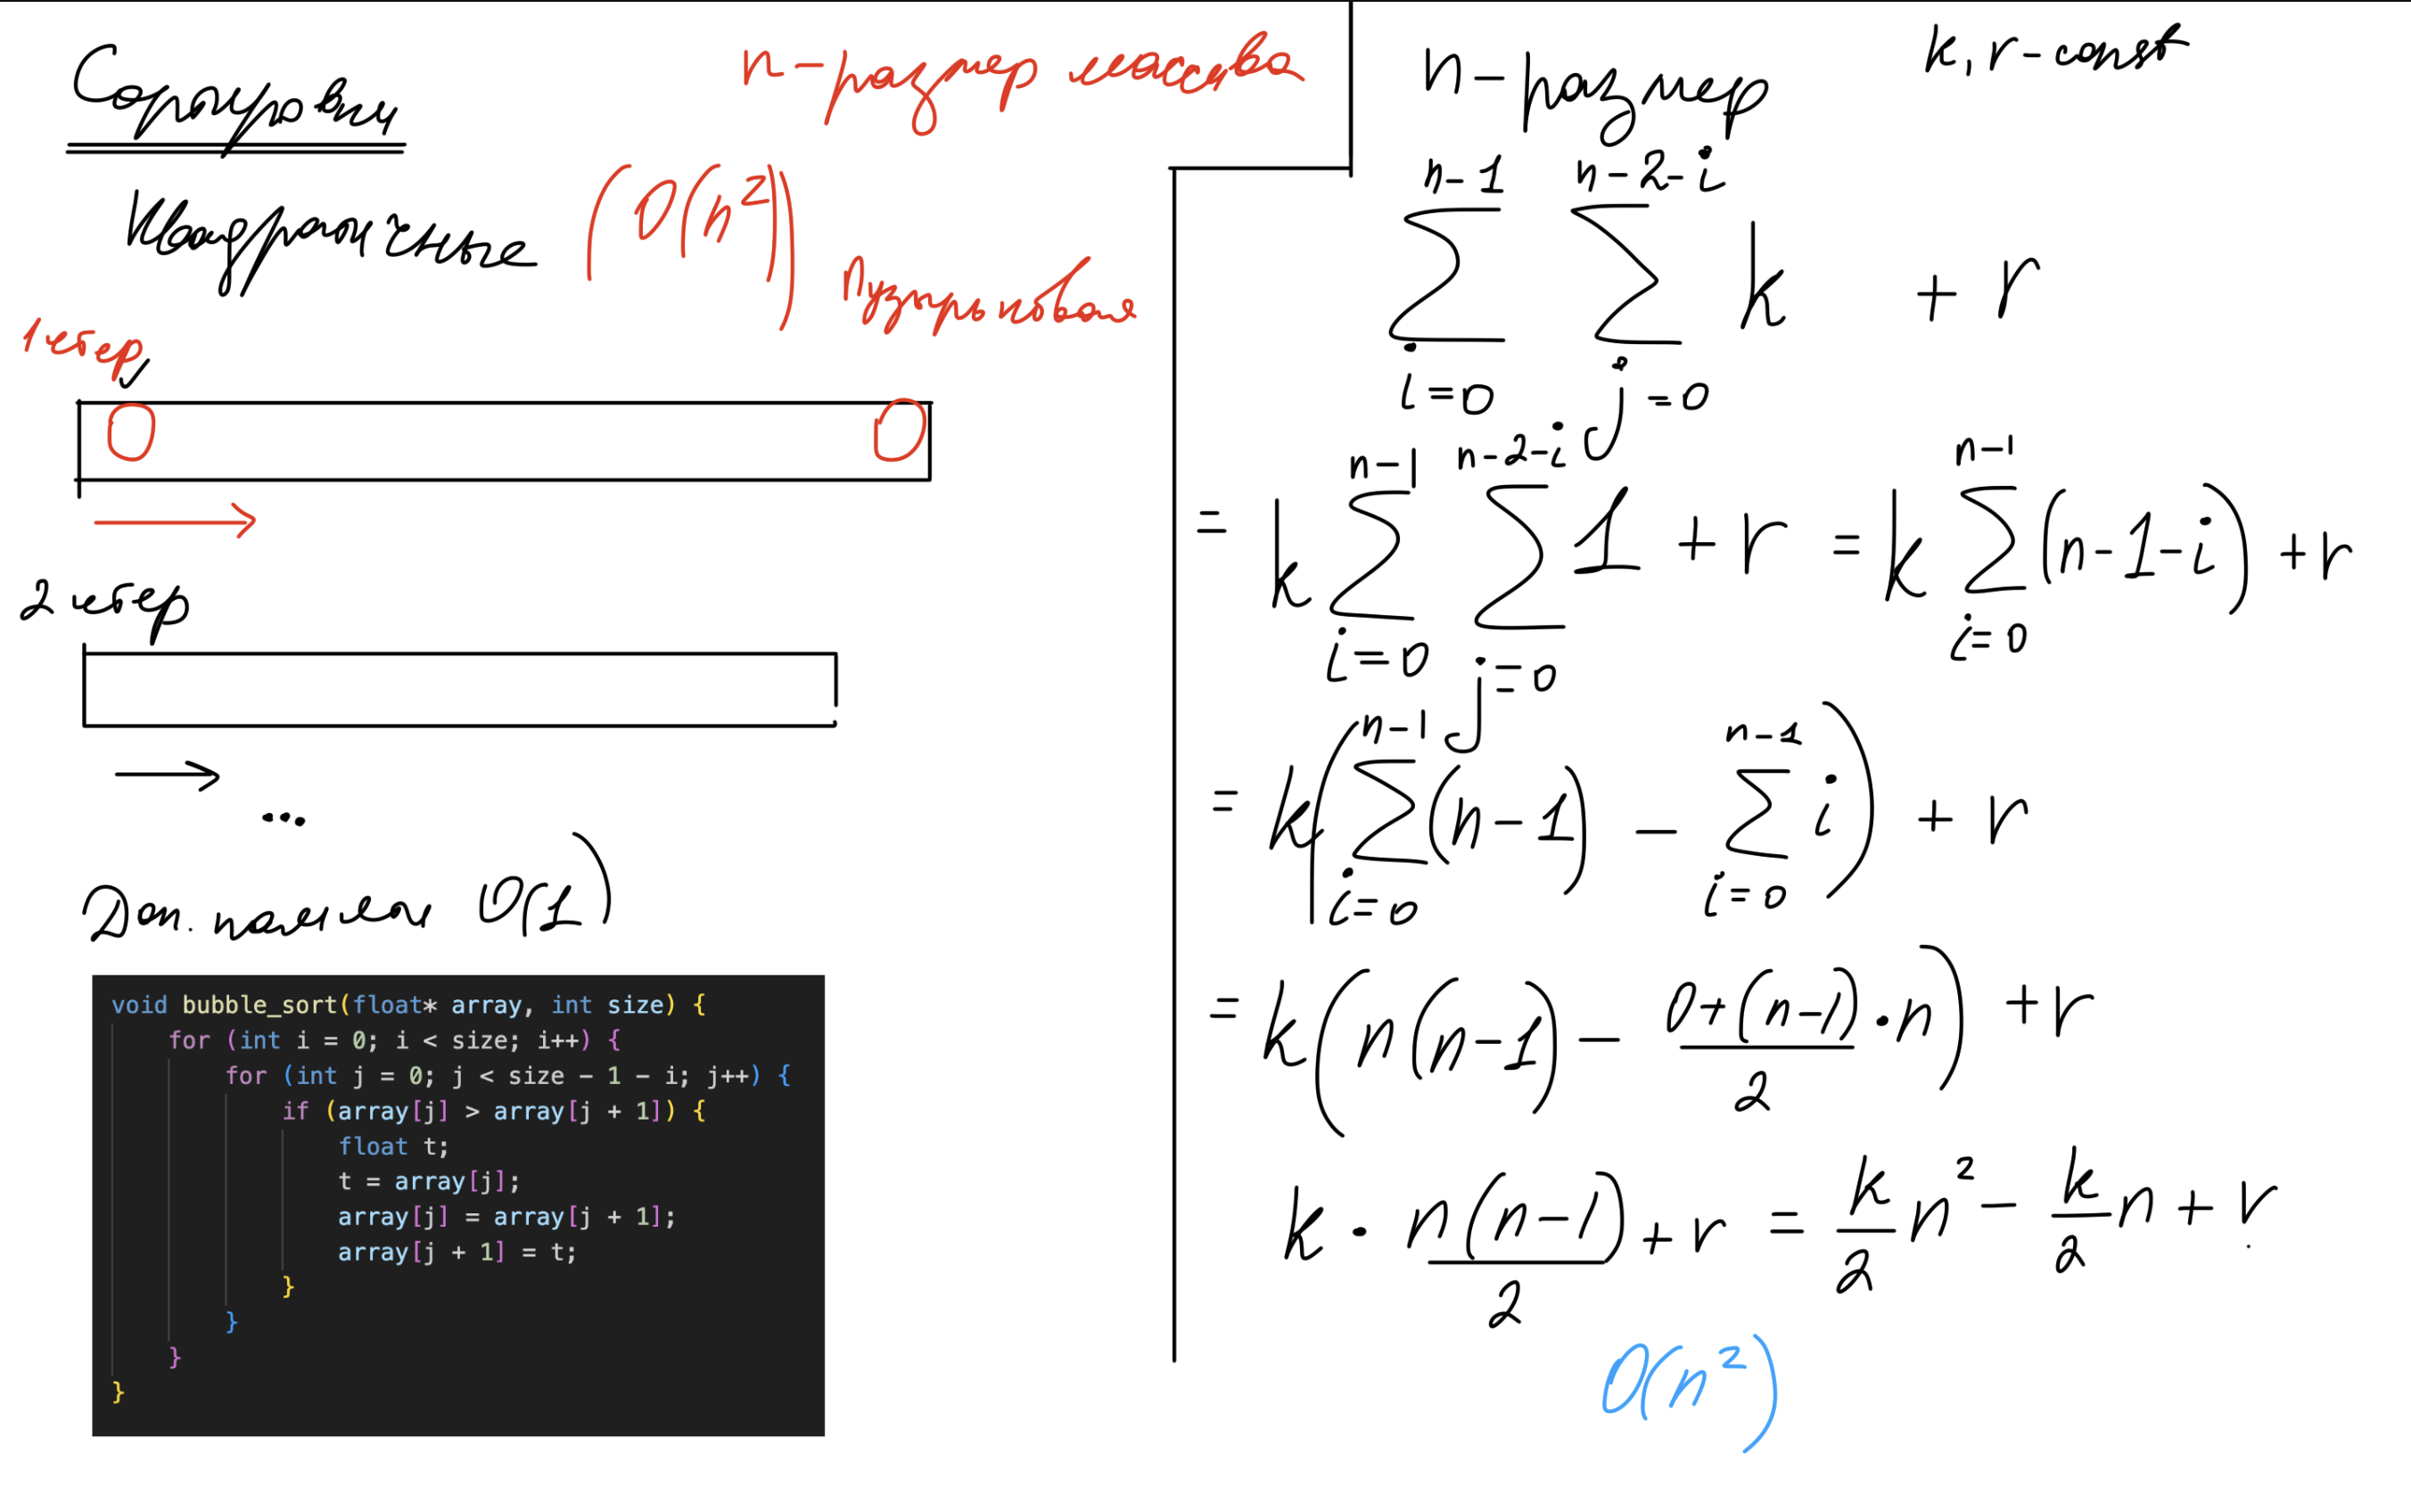 Сортировки
n - размер массива
Квадратичные (O(n²))
Пузырьковая
1 итер
0 0
2 итер
...
Доп. память O(1)
void bubble_sort(float* array, int size) {
for (int i = 0; i < size; i++) {
for (int j = 0; j < size - 1 - i; j++) {
if (array[j] > array[j + 1]) {
float t;
t = array[j];
array[j] = array[j + 1];
array[j + 1] = t;
}
}
}
}
n - размер
k, r - const
∑_{i=0}^{n-1} ∑_{j=0}^{n-2-i} k + r
= k ∑_{i=0}^{n-1} ∑_{j=0}^{n-2-i} 1 + r = k ∑_{i=0}^{n-1} (n-1-i) + r
= k(∑_{i=0}^{n-1} (n-1) - ∑_{i=0}^{n-1} i) + r
= k(n(n-1) - (0+(n-1))/2 · n) + r
k · n(n-1)/2 + r = k/2 n² - k/2 n + r
O(n²)